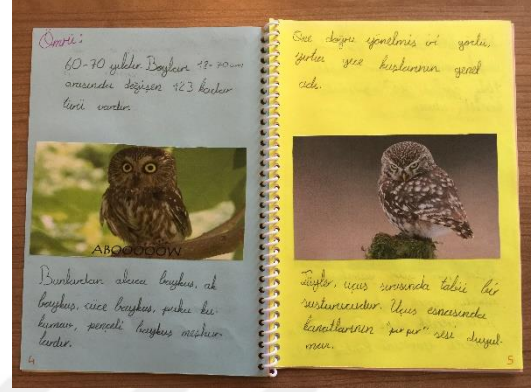 Ömrü:
60-70 yıldır. Boyları 13-70 cm
arasında değişen 123 kadar
türü vardır.
ABOOOOOW
Bunlardan alaca baykuş, ak
baykuş, cüce baykuş, puhu ku
kumav, peçeli baykuş meşhur-
lardır.
4
Öne doğru yönelmiş iri gözlü,
yırtıcı gece kuşlarının genel
adı.
Tüyler, uçuş sırasında tabii bir
susturucudur. Uçuş esnasında
kanatlarının "pır pır" sesi duyul-
maz.
5